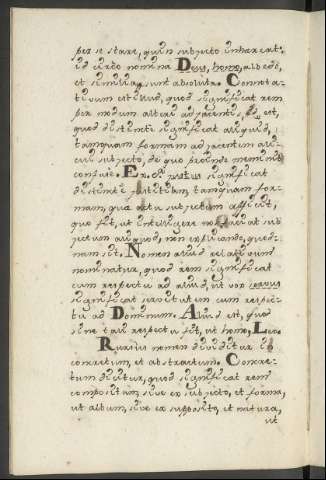 per se stare, quin subjecto inhaereat:
id circo nomina Deus, homo, albedo,
et similia, sunt absoluta. Connota-
tivum est illud, quod significat rem
per modum alteri adjacentis,
quod distincte significat aliquid,
tamquam formam adjacentem ali-
cui subjecto, de quo proinde meminit
confuse. Ex. significat
distincte tamquam for-
mam, quae actu subjectum afficit,
quo fit, ut intelligere sub-
jectum aliquod, non explicando, quod-
nam sit. Nomen aliud relativum
nominatur, quod rem significat
cum respectu ad aliud, ut vox servus
significat servitutem cum respec-
tu ad Dominum. Aliud est, quod
sine tali respectu fit, ut homo, Leo.
Rursus nomen dividitur in
concretum, et abstractum. Concre-
tum dicitur, quod significat rem
compositam sive ex subjecto, et forma,
ut album, sive ex supposito, et natura,
ut